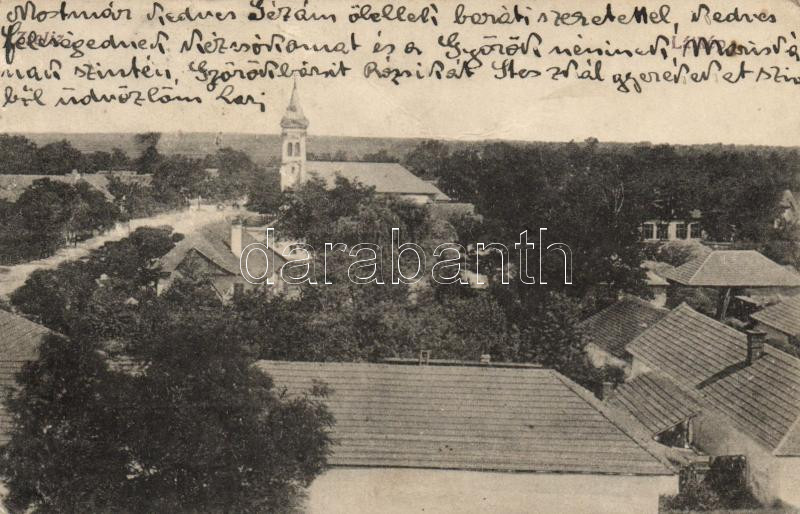 Mostmár kedves Gézám ölelleli baráti szeretettel, kedves
feleségednek Kézsókomat és a Györök néninek, Mariská
nak szintén, Györökbácsit Rózsikát Stesztál gyerekeket szin
ből üdvözlöm Laci
darabanth